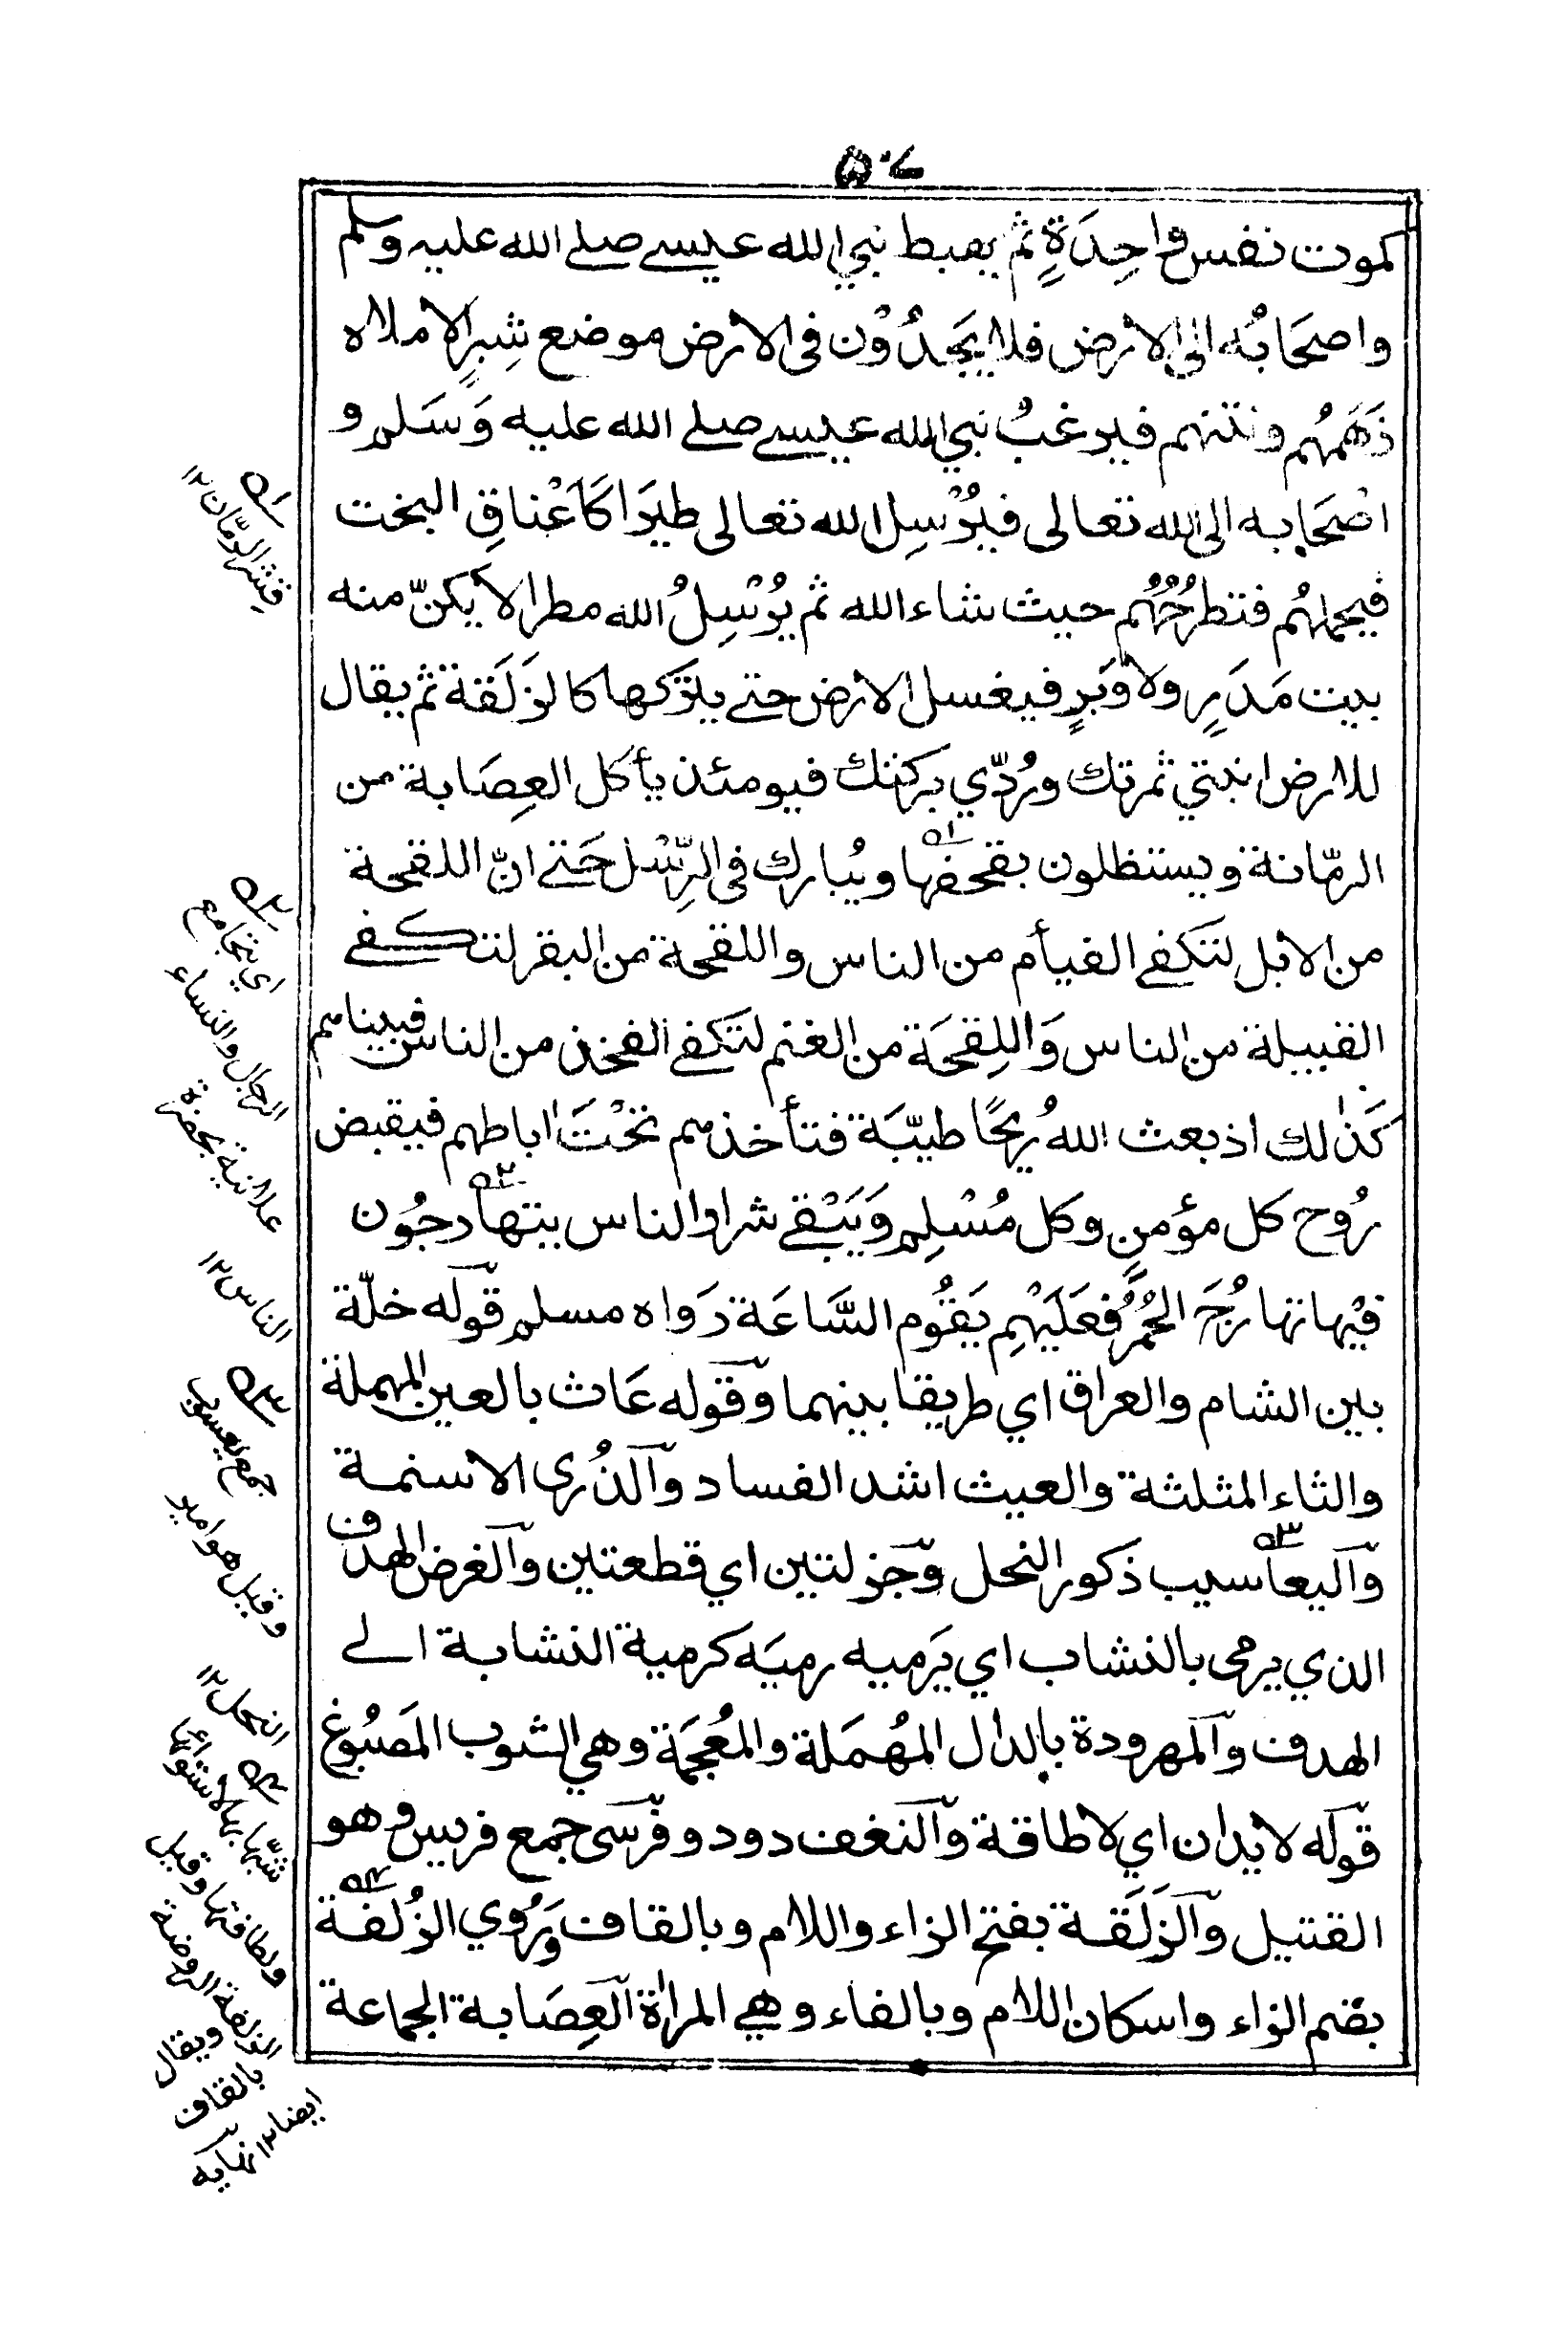 ٥٠٧
كموت نفس واحِدَةٍ ثم يهبط نبي الله عيسے صلے الله عليه وسلم
واصحَابُه الى الارض فلا يَجدُوْن فى الارض موضع شِبرٍ الا ملاه
زَهَمُهم ونتنهم فيرغبُ نبي الله عيسے صلے الله عليه وَسَلم و
اصْحَابه الى الله تعالى فيُرْسِل الله تعالى طيرَا كَاَعْناقِ البخت
فيحملهُم فتطرحُهُم حيث شاء الله ثم يُرْسِلُ الله مطرا لا يكنّ منه
بيت مَدَرٍ ولا وَبَرٍ فيغسل الارض حتے يتركها كالزَلَقة ثم يقال
للارض انبتي ثمرتك ورُدّي بركتك فيومئذ يأكل العِصَابة من
الرمّانة ويستظلون بقحفها ويُبارك فى الرِّسْل حَتے انّ اللقحة
من الابل لتكفے الفيأم من الناس واللقحة من البقر لتكفے
القبيلة من الناس وَاللِقحَة من الغنم لتَكفے الفخذ من الناس فبيناهم
كَذٰلك اذ بعث اللهُ ريحًا طيّبَة فتأخذهم تحْتَ اباطهم فيقبض
رُوح كل مؤمنٍ وكل مُسْلِم وَيَبْقے شرار الناس يتهارجُون
فيْها تهارُجَ الحُمُرِ فعَلَيْهِم يَقُوم السَّاعَة رَواه مسلم قوله خلّة
بين الشام والعراق اي طريقا بينهما وقوله عَاث بالعين المهملة
والثاء المثلثة والعيث اشد الفساد والذُرى الاسنمة
واليعاسيب ذكور النحل وجزلتين اي قطعتين والغرض الهدف
الذي يرمى بالنشاب اي يَرميه رميَه كرمية النشابة الے
الهدف والمهرودة بالدال المُهمَلة والمُعجمَة وهي الثوب المَصبُوغ
قوله لا يدان اي لا طاقة والنغف دود وفرسَى جمع فريس وهو
القتيل والزَلَقة بفتح الزاء واللام وبالقاف ورُوي الزُلفة
بضم الزاء واسكان اللام وبالفاء وهي المراٰة العِصَابة الجماعة
١ه
قشر الرمّان ١٢
٢ه
اي يتجامع
الرجال والنساء
علانية بحضرة
الناس ١٢
٣ه
جمع يعسوب
وقيل هو امير
النحل ١٢
٤ه
شبّهها بها لاستوائها
ولطافتها وقيل
الزلفة الروضة
ويقال
بالقاف
ايضا ١٢ نهايه